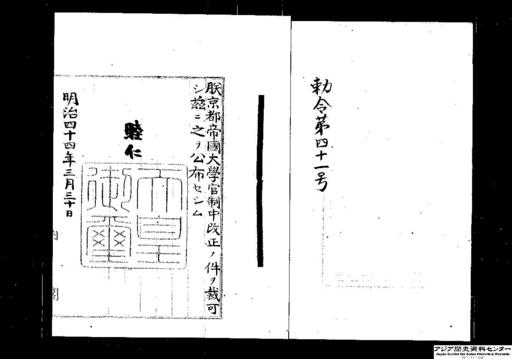 勅令第四十一号
朕京都帝國大學官制中改正ノ件ヲ裁可
シ茲ニ之ヲ公布セシム
睦仁
天皇
御璽
明治四十四年三月三十日
内
閣
アジア歴史資料センター
Japan Center for Asian Historical Records